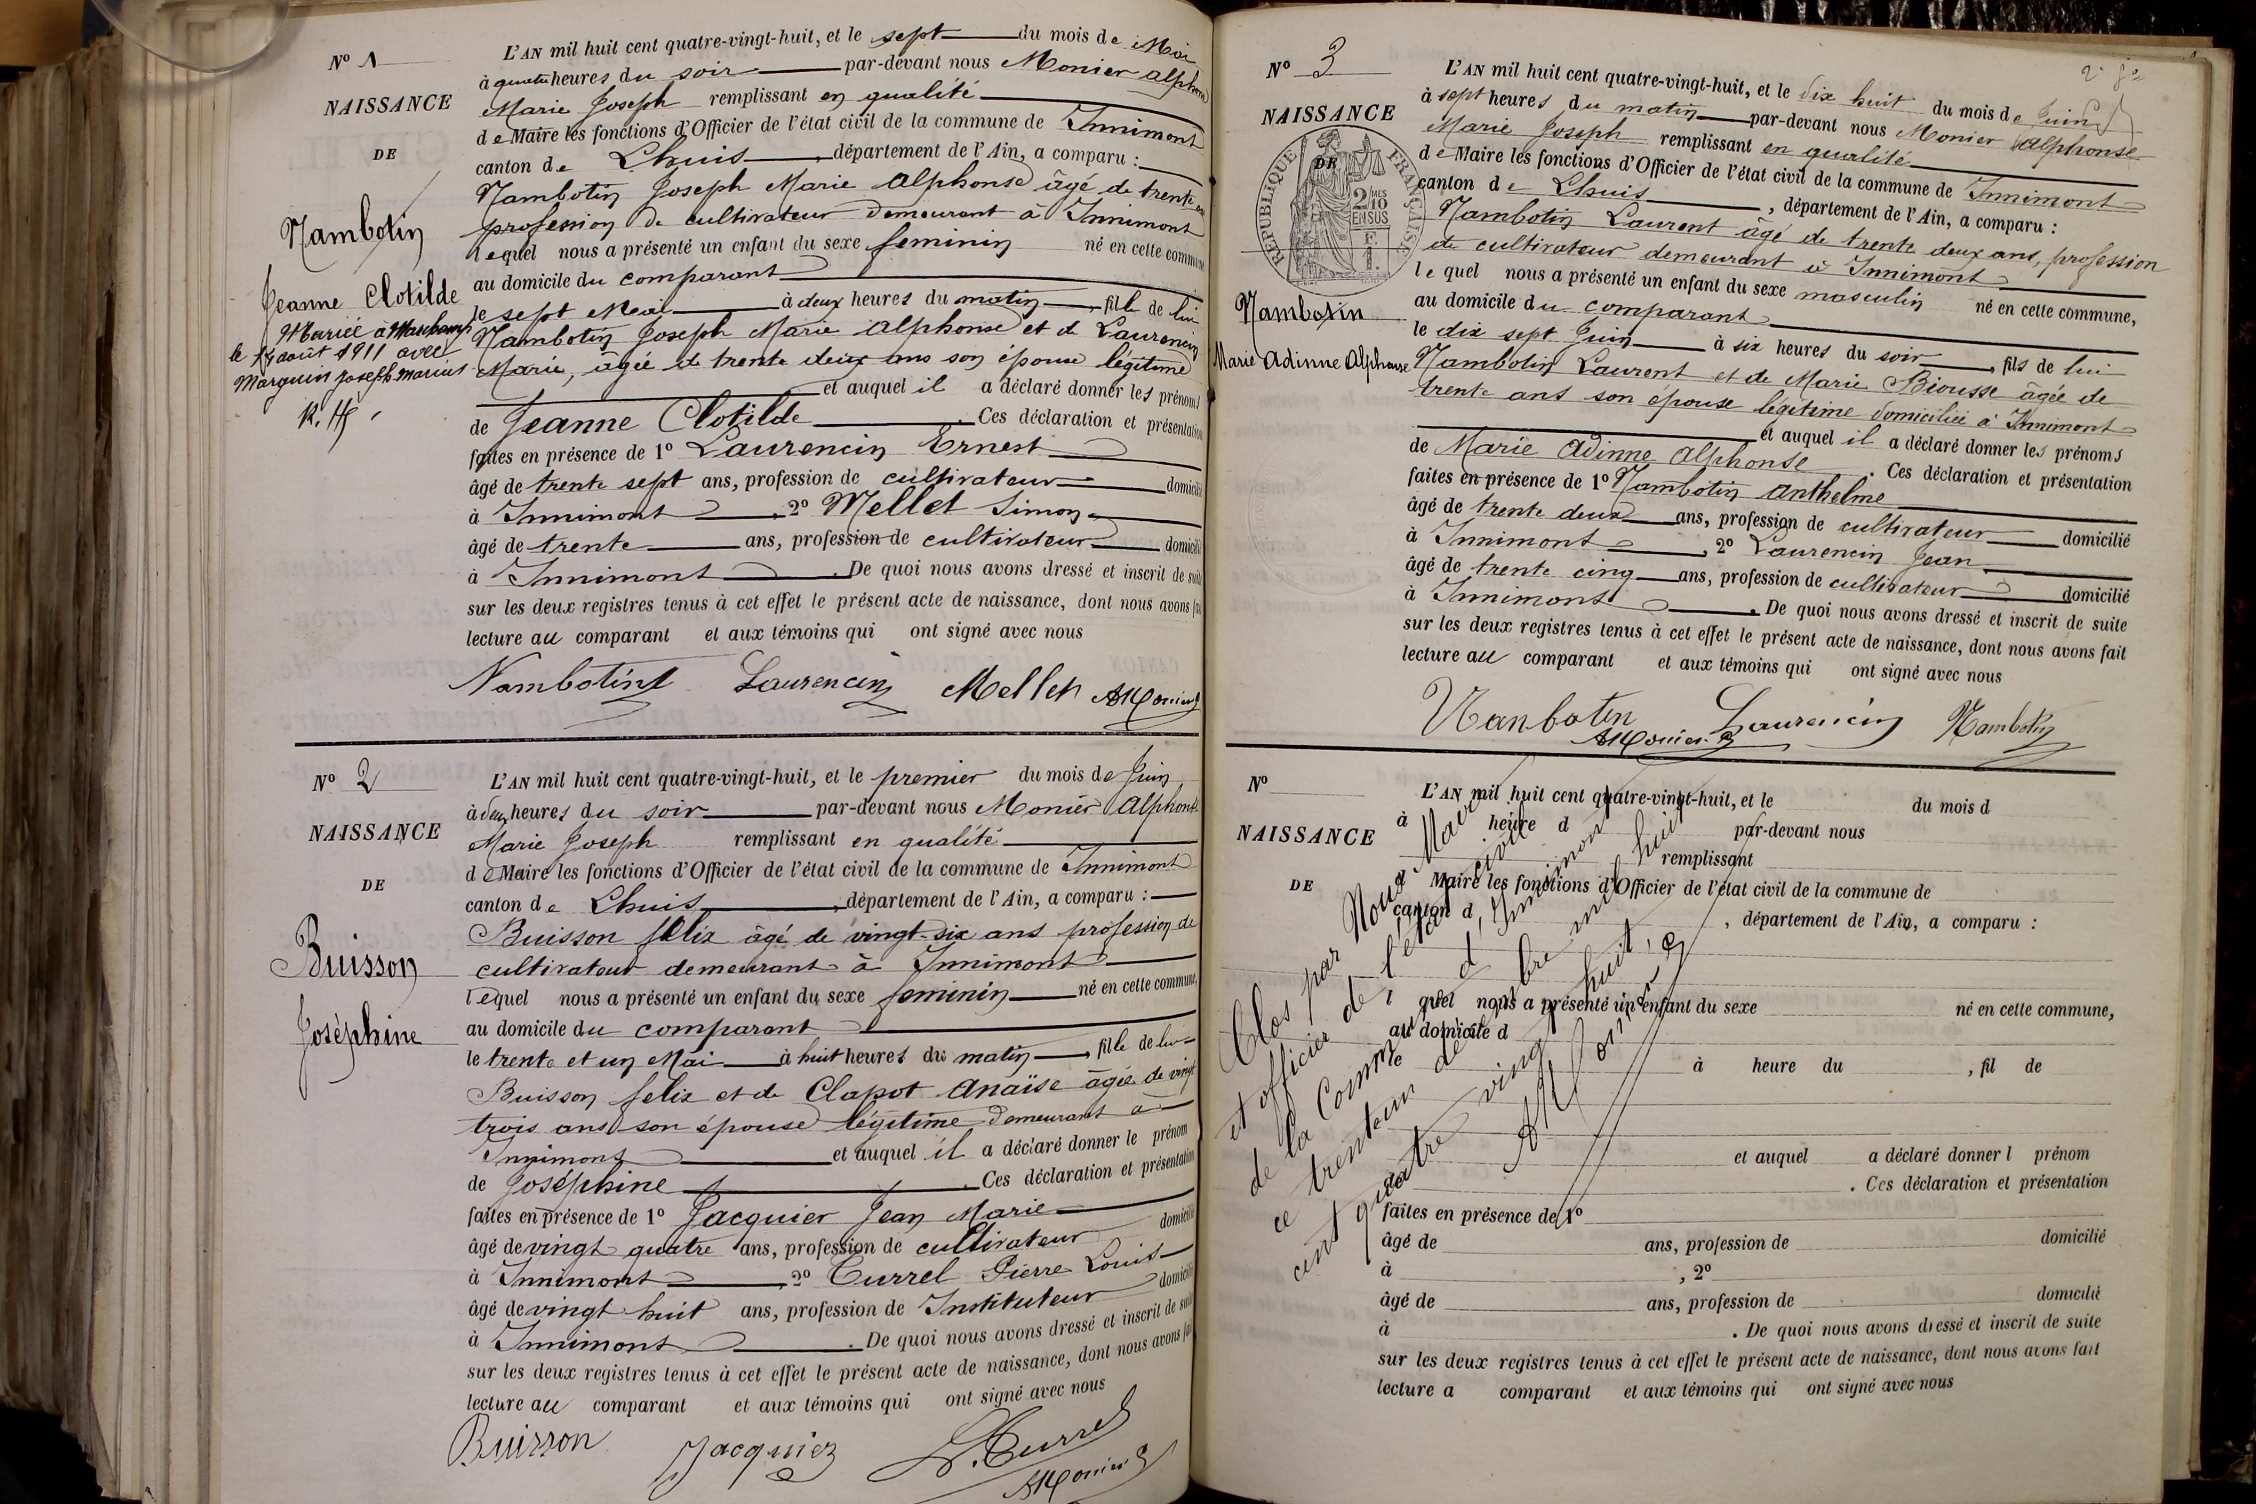 N° 1
NAISSANCE
DE
Nambotin
Jeanne Clotilde
Mariée à Marchamp
le 17 août 1911 avec
Marguin Joseph Marius
L'AN mil huit cent quatre-vingt-huit, et le sept du mois de Mai
à quatre heures du soir par-devant nous Monier Alphonse
Marie Joseph remplissant en qualité
de Maire les fonctions d'Officier de l'état civil de la commune de Innimont
canton de Lhuis, département de l'Ain, a comparu :
Nambotin Joseph Marie Alphonse âgé de trente
profession de cultivateur demeurant à Innimont
lequel nous a présenté un enfant du sexe feminin né en cette commune
au domicile du comparant
le sept Mai à deux heures du matin, fille de lui
Nambotin Joseph Marie Alphonse et d Laurencin
Marie, âgée de trente deux ans son épouse légitime
et auquel il a déclaré donner les prénoms
de Jeanne Clotilde. Ces déclaration et présentation
faites en présence de 1° Laurencin Ernest
âgé de trente sept ans, profession de cultivateur domicilié
à Innimont, 2° Mellet Simon
âgé de trente ans, profession de cultivateur domicilié
à Innimont. De quoi nous avons dressé et inscrit de suite
sur les deux registres tenus à cet effet le présent acte de naissance, dont nous avons fait
lecture au comparant et aux témoins qui ont signé avec nous
Nambotin Laurencin Mellet AMonier
N° 2
NAISSANCE
DE
Buisson
Joséphine
L'AN mil huit cent quatre-vingt-huit, et le premier du mois de Juin
à deux heures du soir par-devant nous Monier Alphonse
Marie Joseph remplissant en qualité
de Maire les fonctions d'Officier de l'état civil de la commune de Innimont
canton de Lhuis, département de l'Ain, a comparu :
Buisson félix âgé de vingt-six ans profession de
cultivateur demeurant à Innimont
lequel nous a présenté un enfant du sexe feminin né en cette commune,
au domicile du comparant
le trente et un Mai à huit heures du matin, fille de lui
Buisson felix et de Clapot Anaïse âgée de vingt
trois ans son épouse légitime demeurant à
Innimont et auquel il a déclaré donner le prénom
de Joséphine. Ces déclaration et présentation
faites en présence de 1° Jacquier Jean Marie
âgé de vingt quatre ans, profession de cultivateur domicilié
à Innimont, 2° Currel Pierre Louis
âgé de vingt huit ans, profession de Instituteur domicilié
à Innimont. De quoi nous avons dressé et inscrit de suite
sur les deux registres tenus à cet effet le présent acte de naissance, dont nous avons fait
lecture au comparant et aux témoins qui ont signé avec nous
Buisson Jacquier L. Currel
AMonier
N° 3
NAISSANCE
DE
RÉPUBLIQUE FRANÇAISE
2 MES
10
EN SUS
Nambotin
Marie Adinne Alphonse
L'AN mil huit cent quatre-vingt-huit, et le dix huit du mois de Juin
à sept heures du matin par-devant nous Monier Alphonse
Marie Joseph remplissant en qualité
de Maire les fonctions d'Officier de l'état civil de la commune de Innimont
canton de Lhuis, département de l'Ain, a comparu :
Nambotin Laurent âgé de trente deux ans, profession
de cultivateur demeurant à Innimont
lequel nous a présenté un enfant du sexe masculin né en cette commune,
au domicile du comparant
le dix sept Juin à six heures du soir, fils de lui
Nambotin Laurent et de Marie Biousse âgée de
trente ans son épouse légitime domiciliée à Innimont
et auquel il a déclaré donner les prénoms
de Marie Adinne Alphonse. Ces déclaration et présentation
faites en présence de 1° Nambotin Anthelme
âgé de trente deux ans, profession de cultivateur domicilié
à Innimont, 2° Laurencin Jean
âgé de trente cinq ans, profession de cultivateur domicilié
à Innimont. De quoi nous avons dressé et inscrit de suite
sur les deux registres tenus à cet effet le présent acte de naissance, dont nous avons fait
lecture au comparant et aux témoins qui ont signé avec nous
Nanboten Laurencin Nambotin
AMonier
N°
NAISSANCE
DE
L'AN mil huit cent quatre-vingt-huit, et le du mois d
à heure d par-devant nous
remplissant
d Maire les fonctions d'Officier de l'état civil de la commune de
canton d , département de l'Ain, a comparu :
l quel nous a présenté un enfant du sexe né en cette commune,
au domicile d
le à heure du , fil de
et auquel a déclaré donner l prénom
de . Ces déclaration et présentation
faites en présence de 1°
âgé de ans, profession de domicilié
à , 2°
âgé de ans, profession de domicilié
à . De quoi nous avons dressé et inscrit de suite
sur les deux registres tenus à cet effet le présent acte de naissance, dont nous avons fait
lecture a comparant et aux témoins qui ont signé avec nous
Clos par Nous Maire
et officier de l'état civil
de la Commune d'Innimont
ce trente un décembre mil huit
cent quatre vingt huit
AMonier